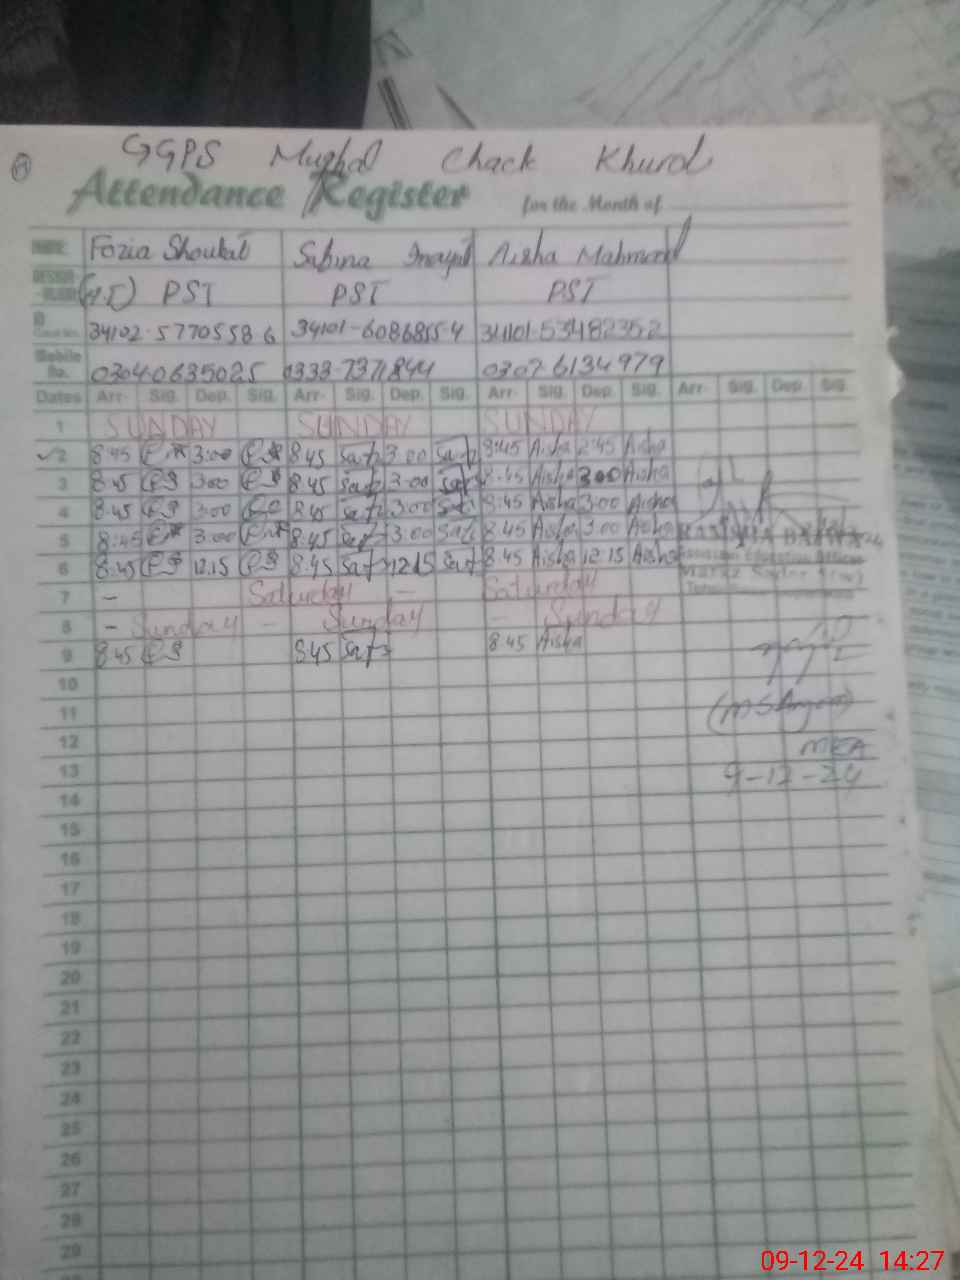 GGPS Mughal Chack Khurd
Attendance Register for the Month of
NAME Fozia Shoukat Sabina Inayat Aisha Mahmood
PST PST PST
34102-5770558 6 34101-6086855-4 34101-53482352
Mobile No. 0304-0635025 0333-7371844 0307 6134979
Dates Arr- Sig. Dep. Sig. Arr- Sig. Dep. Sig. Arr- Sig. Dep. Sig. Arr- Sig. Dep. Sig.
1 SUNDAY SUNDAY SUNDAY
2 8:45 3:00 8:45 3:00 8:45 Aisha 2:45 Aisha
3 8:45 3:00 8:45 3:00 8:45 Aisha 3:00 Aisha
4 8:45 3:00 8:45 3:00 8:45 Aisha 3:00 Aisha
5 8:45 3:00 8:45 3:00 8:45 Aisha 3:00 Aisha
6 8:45 12.15 8:45 12.15 8:45 Aisha 12:15 Aisha
7 - Saturday - Saturday
8 - Sunday - Sunday - Sunday
9 8:45 8:45 8:45 Aisha
10
11
12 MEA
13 9-12-24
14
15
16
17
18
19
20
21
22
23
24
25
26
27
28
29
09-12-24 14:27